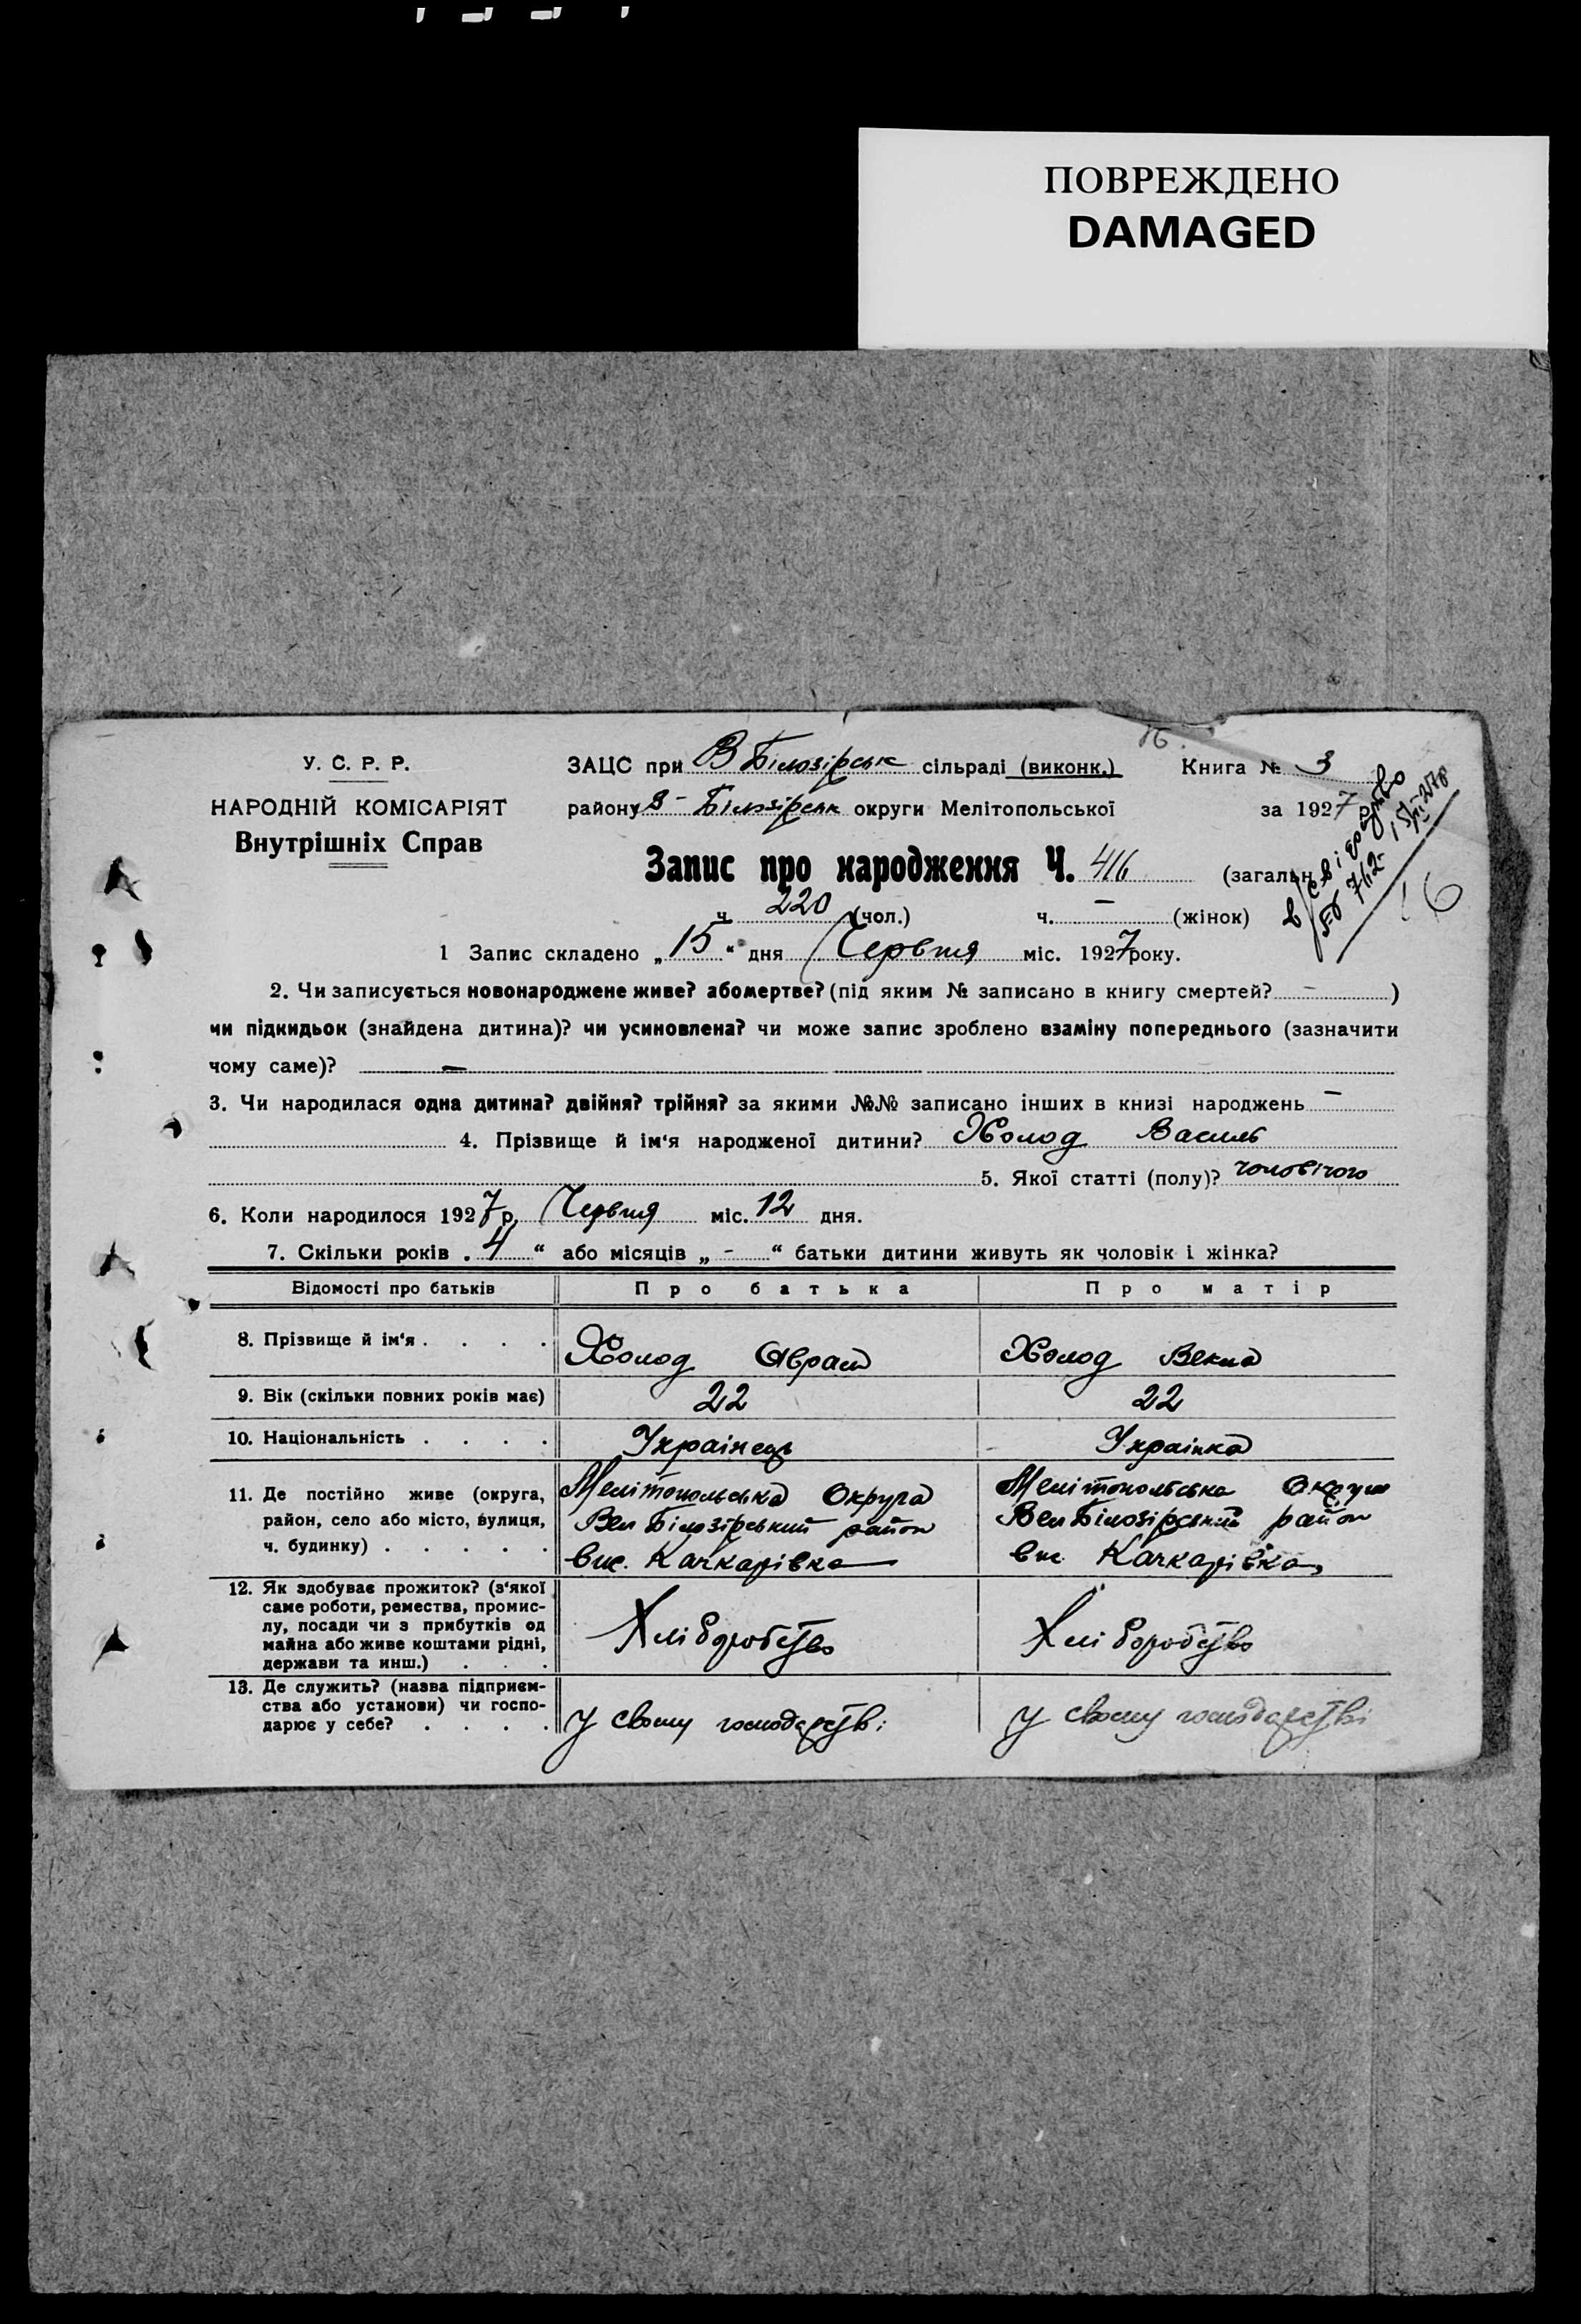 ПОВРЕЖДЕНО
DAMAGED
16.
У. С. Р. Р.
НАРОДНІЙ КОМІСАРІЯТ
Внутрішніх Справ
ЗАЦС при В Білозірськ сільраді (виконк.) Книга № 3
району В-Білозірськ округи Мелітопольської за 1927
Запис про народження Ч. 416 (загальн
ч. 220 (чол.) ч. — (жінок)
16
1 Запис складено „ 15 “ дня Червня міс. 1927 року.
2. Чи записується новонароджене живе? або мертве? (під яким № записано в книгу смертей? – )
чи підкидьок (знайдена дитина)? чи усиновлена? чи може запис зроблено взаміну попереднього (зазначити
чому саме)? —
3. Чи народилася одна дитина? двійня? трійня? за якими №№ записано інших в книзі народжень –
4. Прізвище й ім‘я народженої дитини? Холод Василь
5. Якої статті (полу)? чоловічого
6. Коли народилося 1927 р. Червня міс. 12 дня.
7. Скільки років „ 4 “ або місяців „ - “ батьки дитини живуть як чоловік і жінка?
Відомості про батьків Про батька Про матір
8. Прізвище й ім‘я . . . . Холод Аврам Холод Векла
9. Вік (скільки повних років має) 22 22
10. Національність . . . . Українець Українка
11. Де постійно живе (округа, район, село або місто, вулиця, ч. будинку) . . . . .
Мелітопольська Округа
Вел Білозірський район
вис. Качкарівка
Мелітопольська Округа
Вел Білозірський район
вис. Качкарівка
12. Як здобуває прожиток? (з‘якої
саме роботи, ремества, промис-
лу, посади чи з прибутків од
майна або живе коштами рідні,
держави та инш.) . . .
Хліборобство Хліборобство
13. Де служить? (назва підприєм-
ства або установи) чи госпо-
дарює у себе? . . . .
У своєму господарстві У своєму господарстві